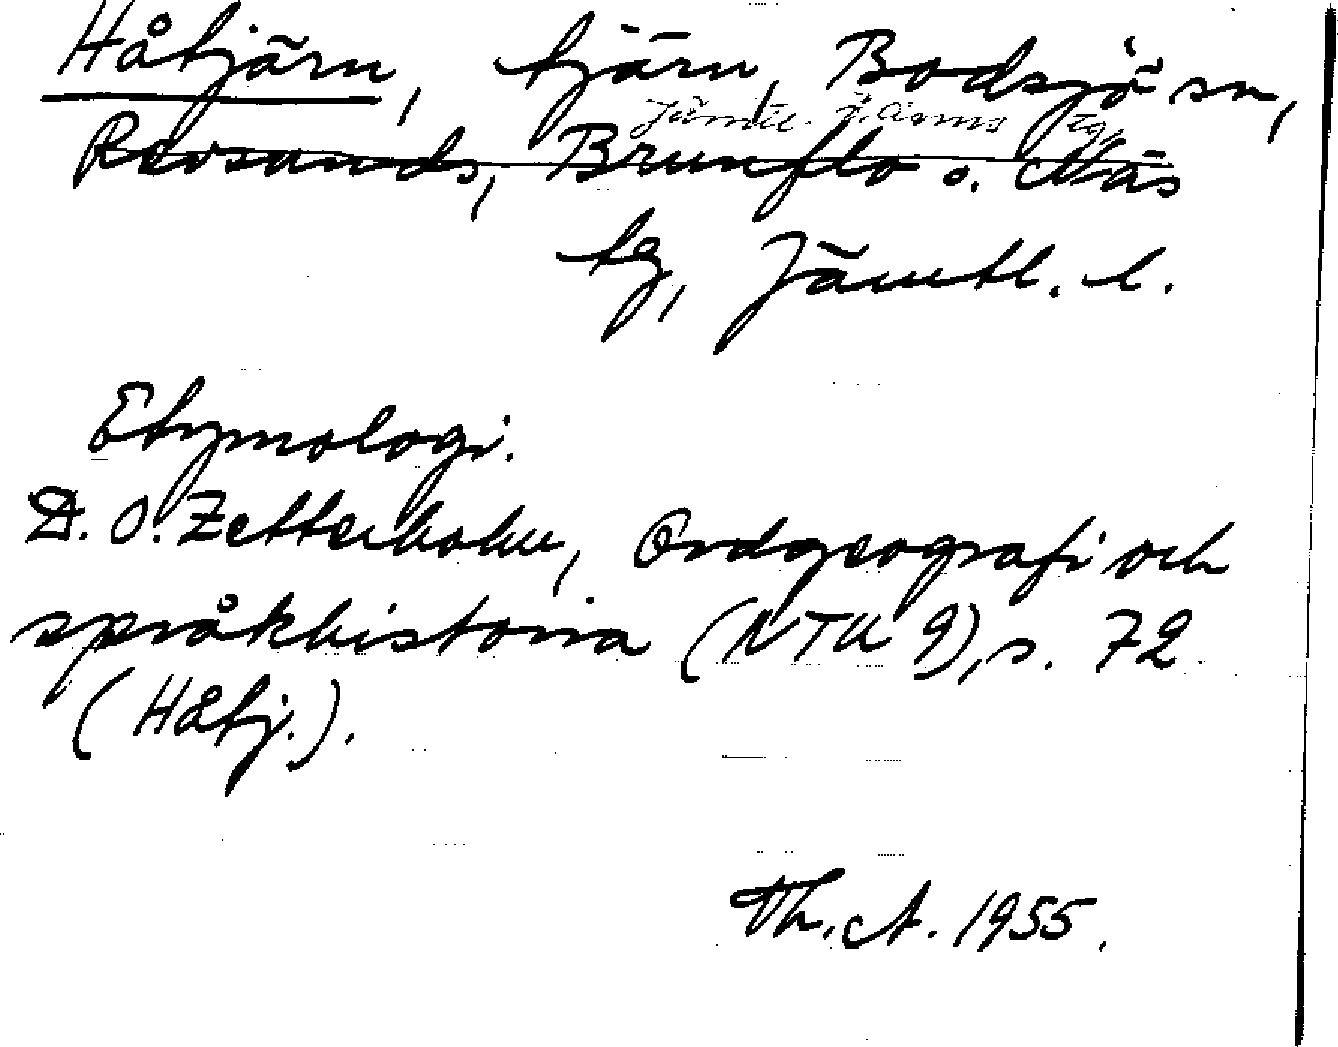 Håtjärn, tjärn, Bodsjö sn,
Jämtl. tg,
Revsunds, Brunflo o. Näs
tg, Jämtl. l.
Etymologi.
D. O. Zetterholm, Ordgeografi och
språkhistoria (NTU 9), s. 72
(Håtj.).
Th. A. 1955.